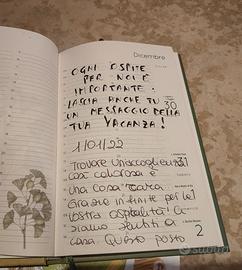 Dicembre
OGNI OSPITE
PER NOI È
IMPORTANTE:
LASCIA ANCHE TU
UN MESSAGGIO DELLA
TUA VACANZA!
30
1/01/22
Trovare un'accoglienza
così calorosa e
una casa
Grazie infinite per la
vostra ospitalità! Ci
siamo sentiti a
casa. Questo posto
2
subito